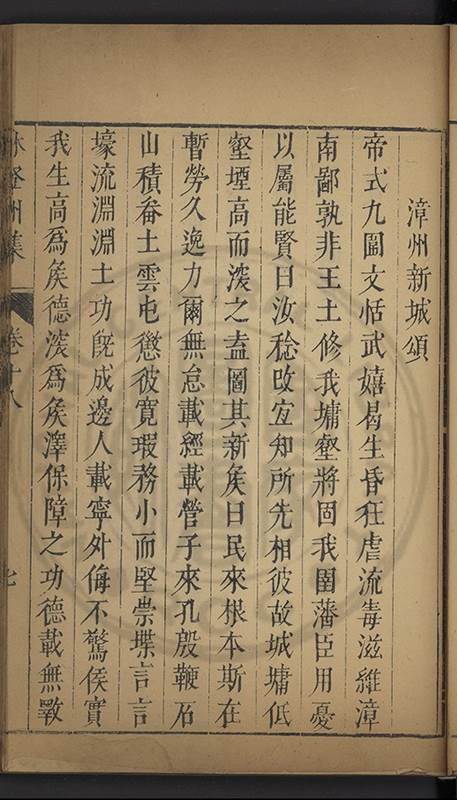 漳州新城頌
帝式九圍文恬武嬉曷生昏狂虐流毒滋維漳
南鄙孰非王土修我墉壑將固我圉藩臣用憂
以屬能賢曰汝稔政宜知所先相彼故城墉低
壑堙高而浚之盍圖其新矦曰民來根本斯在
暫勞久逸力爾無怠載經載營子來孔殷鞭石
山積畚土雲屯懲彼寛瑕務小而堅崇堞言言
壕流淵淵土功旣成邊人載寧外侮不驚侯實
我生高爲矦德浚爲矦澤保障之功德載無斁
林登州集 卷十八 七